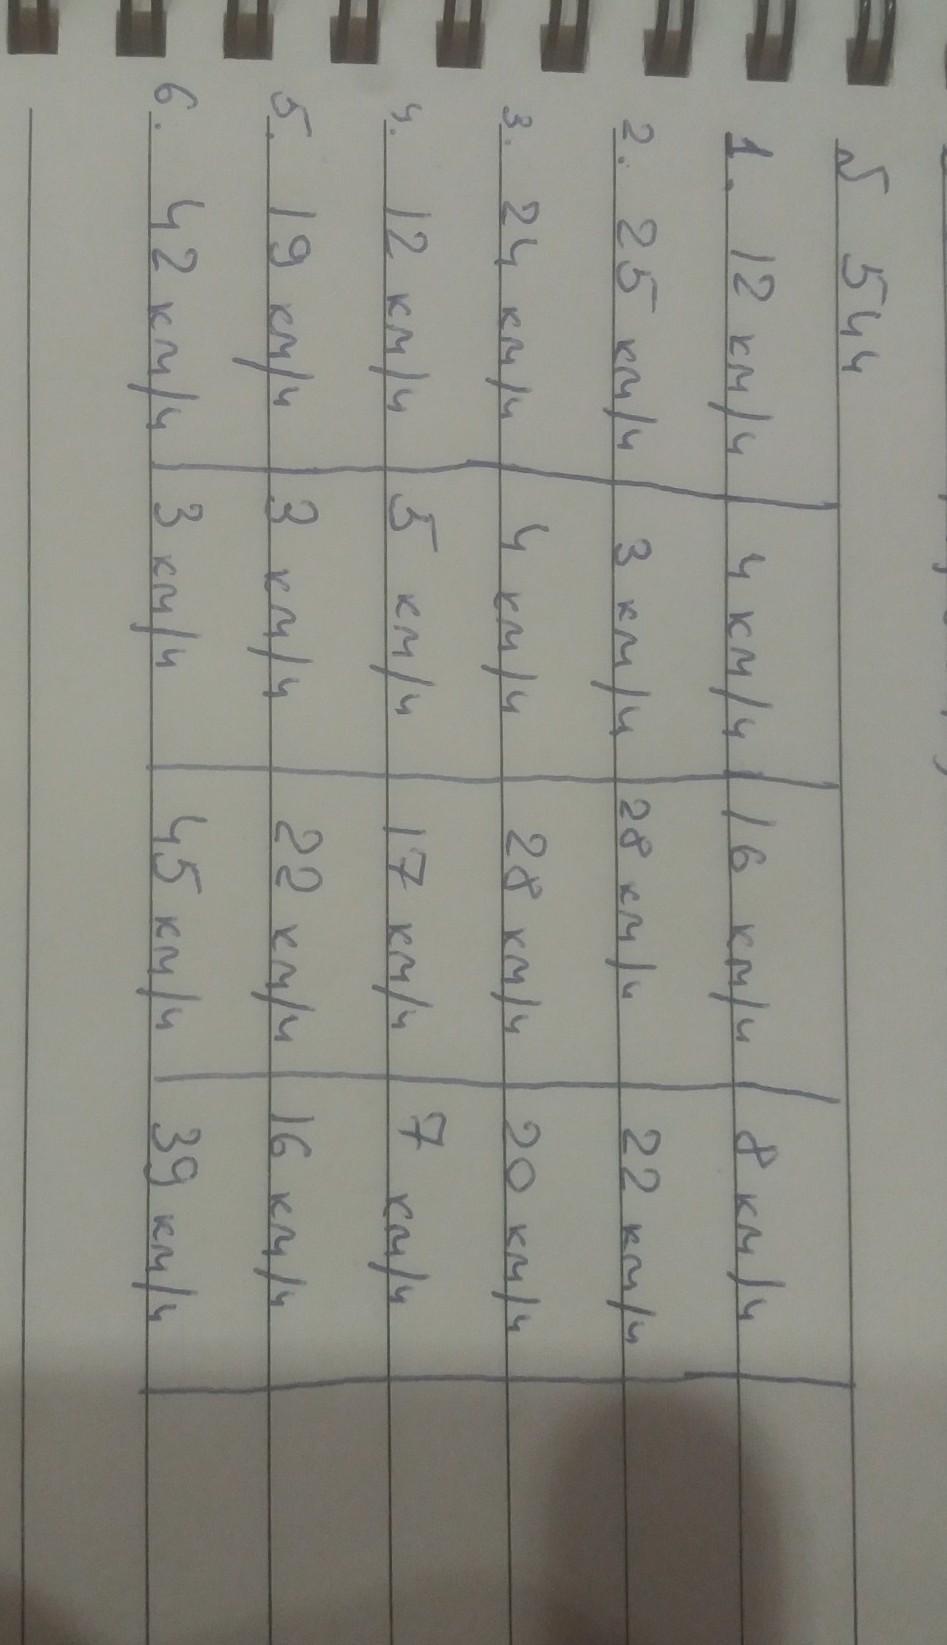 № 544
1. 12 км/ч 4 км/ч 16 км/ч 8 км/ч
2. 25 км/ч 3 км/ч 28 км/ч 22 км/ч
3. 24 км/ч 4 км/ч 28 км/ч 20 км/ч
4. 12 км/ч 5 км/ч 17 км/ч 7 км/ч
5. 19 км/ч 3 км/ч 22 км/ч 16 км/ч
6. 42 км/ч 3 км/ч 45 км/ч 39 км/ч